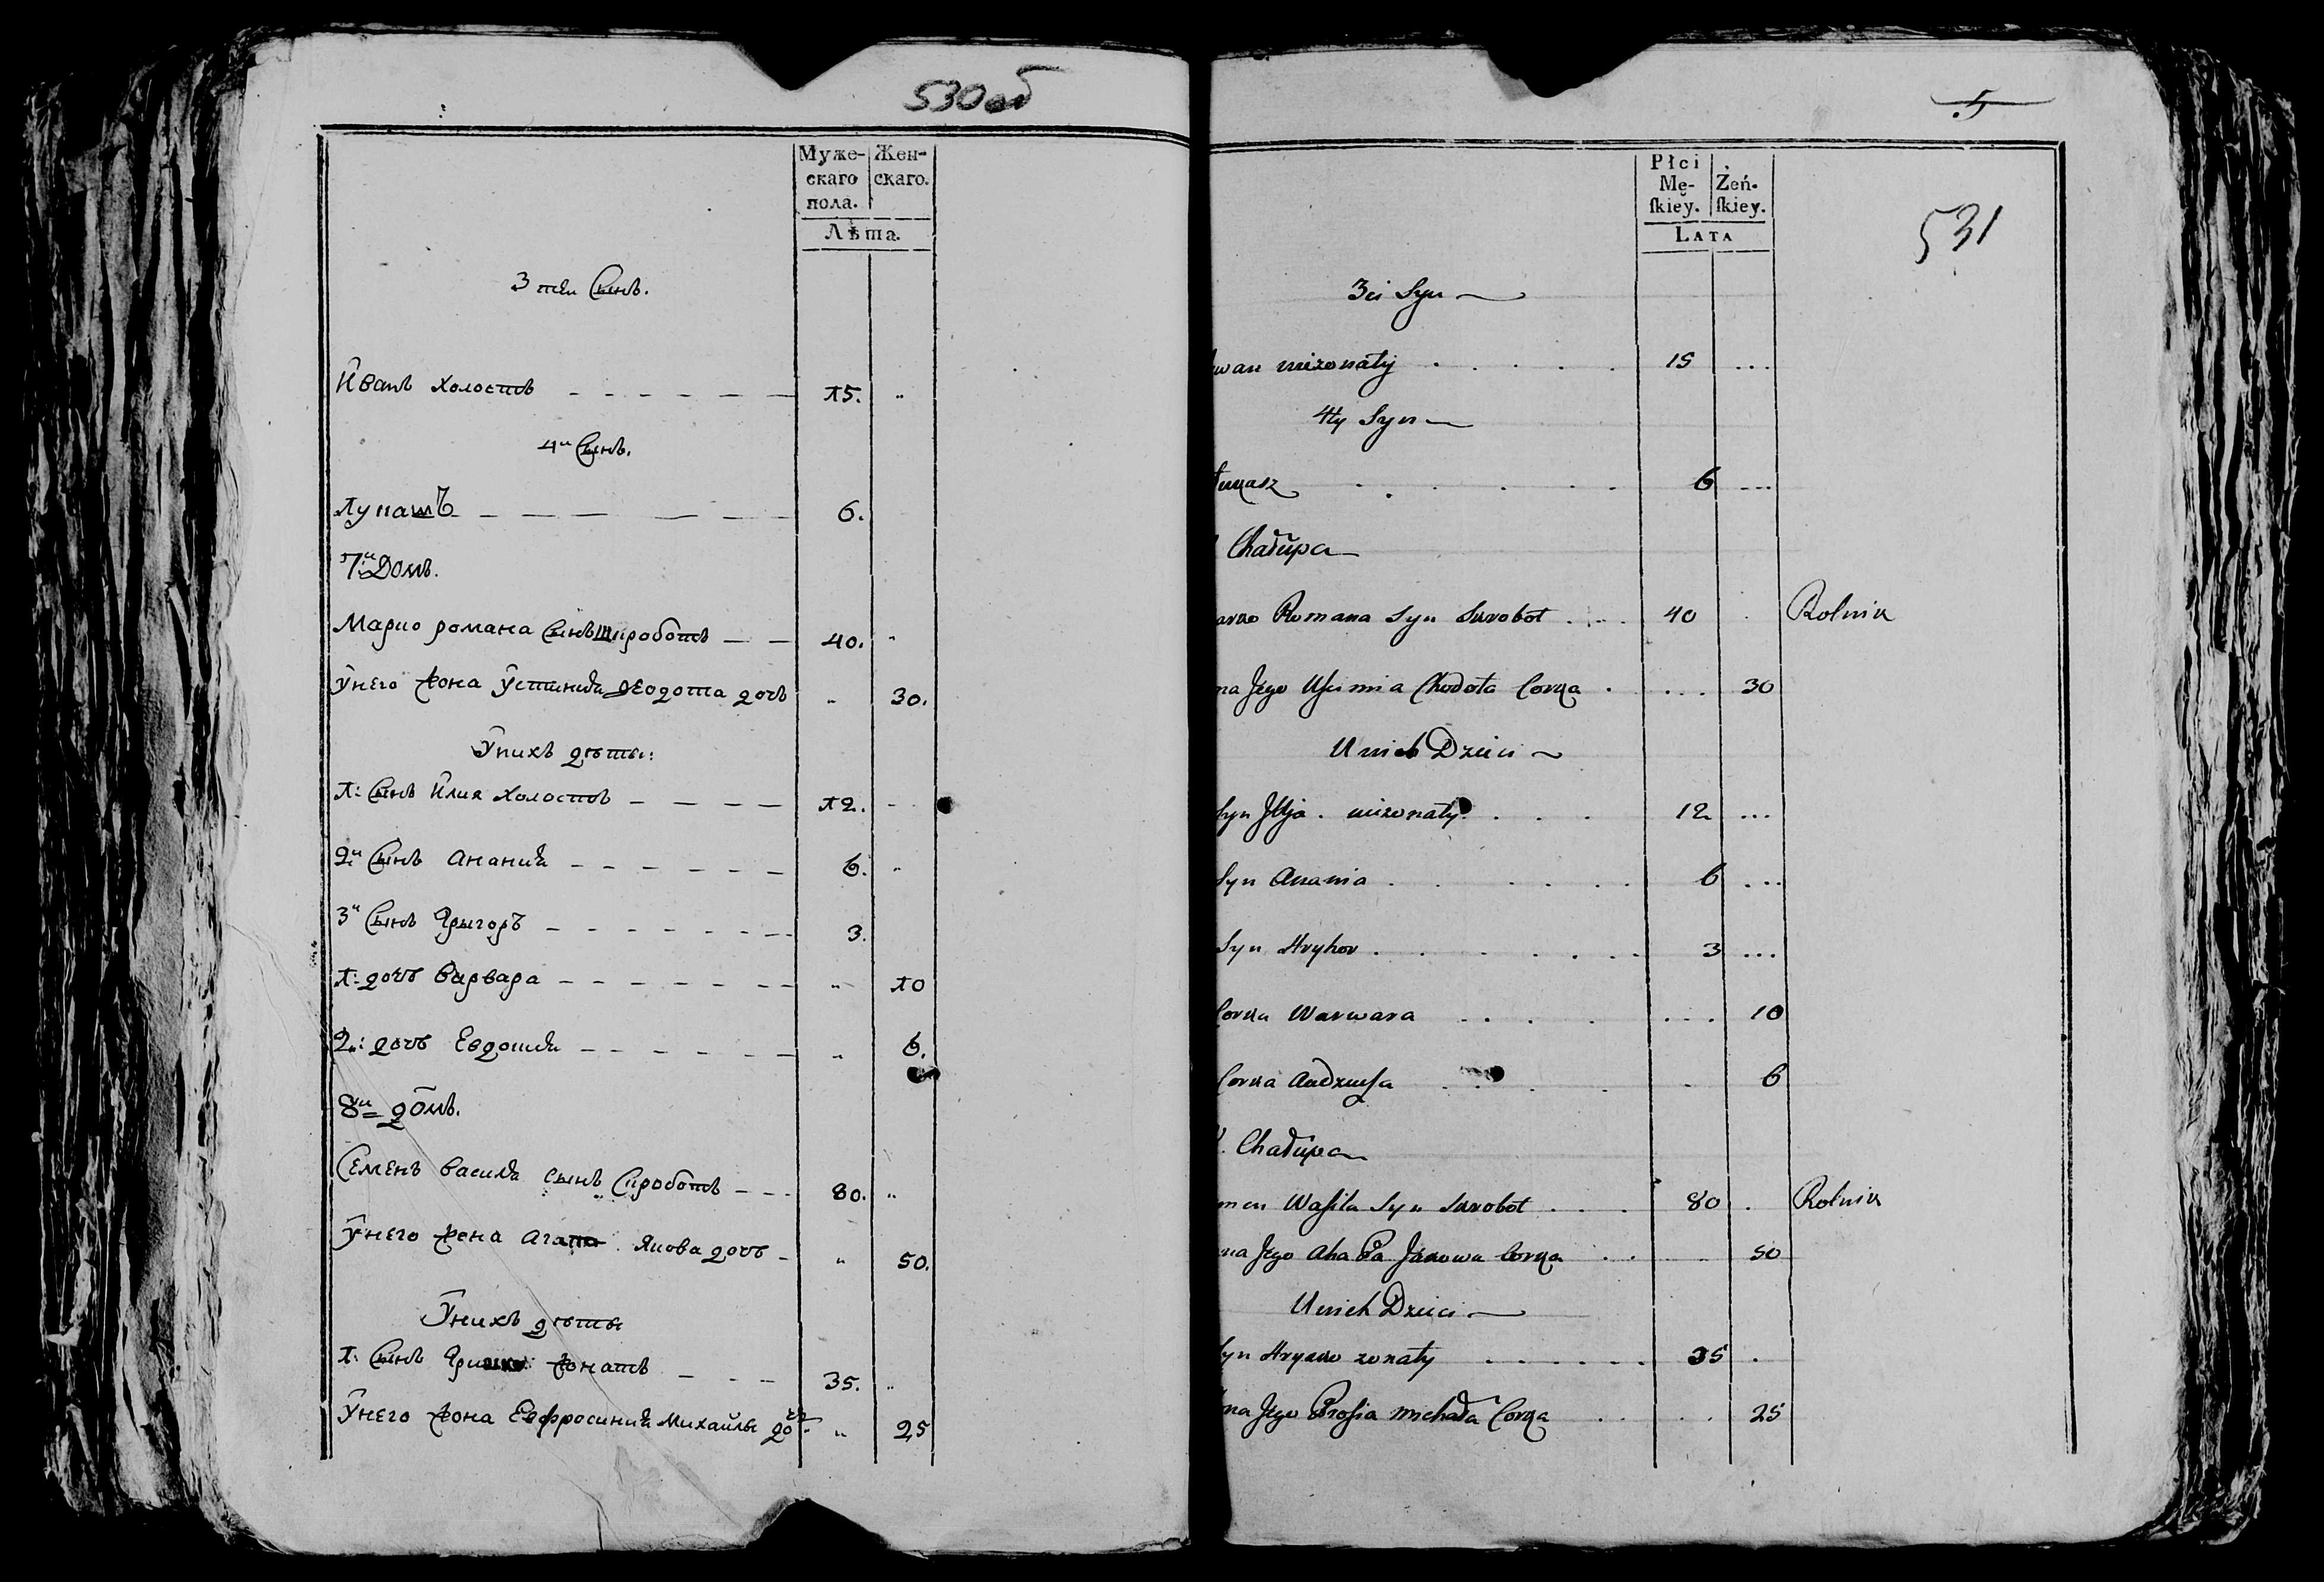 530 об
Муже-
скаго
пола.
Жен-
скаго.
Лѣта.
3 тїи Сынъ.
Иванъ холостъ 15. „
4й Сынъ.
Лукашъ 6.
7й Домъ.
Марко романа Сынъ шкроботъ 40. „
Унего жона Устинїя Ѳеодота дочь „ 30.
Унихъ дѣти:
1: Сынъ Илия холостъ 12. -
2й Сынъ Ананїя 6. „
3й Сынъ Грыгоръ 3.
1: дочь Варвара „ 10
2: дочь Евдотїя „ 6.
8й домъ.
Семенъ Василя сынъ Скроботъ 80. „
Унего жена Агапа Янова дочь „ 50.
Унихъ дѣти
1: Сынъ жонатъ 35. „
Унего жона Евфросинїя Михайлы дочь „ 25
5
531
Płci
Mę-
ſkiey.
Żeń-
ſkiey.
LATA
3ci Syn
wan nieżonaty 15 ...
4ty Syn
Łukasz 6 ...
Chałupa
arko Romana Syn Skrobot 40 . Rolnik
na Jego Uscinia Chodota Corka ... 30
U nich Dzieci
Syn Jlija nieżonaty 12 ...
Syn Anania 6 ...
Syn Hryhor 3 ...
Corka Warwara ... 10
Corka 6
Chałupa
men Waſila Syn Skrobot 80 . Rolnik
na Jego Ahapa Janowa Corka 50
U nich Dzieci
Syn Hryszko zonaty 35 .
na Jego Proſia Michała Corka 25